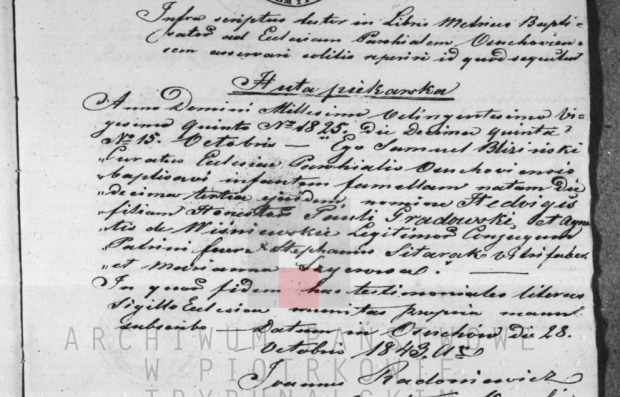 Infra scriptus testor in Libris Metrices Bapti-
satoru ad Ecclesiam Parochialem Osuchovien-
sem asservari solitis reperiri id quod sequitur
Huta piekarska
Anno Domini Millesimo Octingentesimo Vi-
gesimo Quinto No 1825. die decima quinta
No 15. Octobris — Ego Samuel Bliziński
Curatus Ecclesiae Parochialis Osuchoviensis
baptisavi infantem famellam natam die
decima tertia ejusdem, nomine Hedvigis
filiam Pauli Gradowski, et Agne-
tis de Wiśniewskie Legitimor Conjugum
Patrini fuere Stephanus Sitarek
et Marianna
In quor fidem has testimoniales literas
Sigillo Ecclesiae munitas propria manu
subscribo — Datum in Osuchow die 28.
Octobris 1843. A
Joannes Radoniewicz
ARCHIWUM PAŃSTWOWE
W PIOTRKOWIE
TRYBUNALSKIM